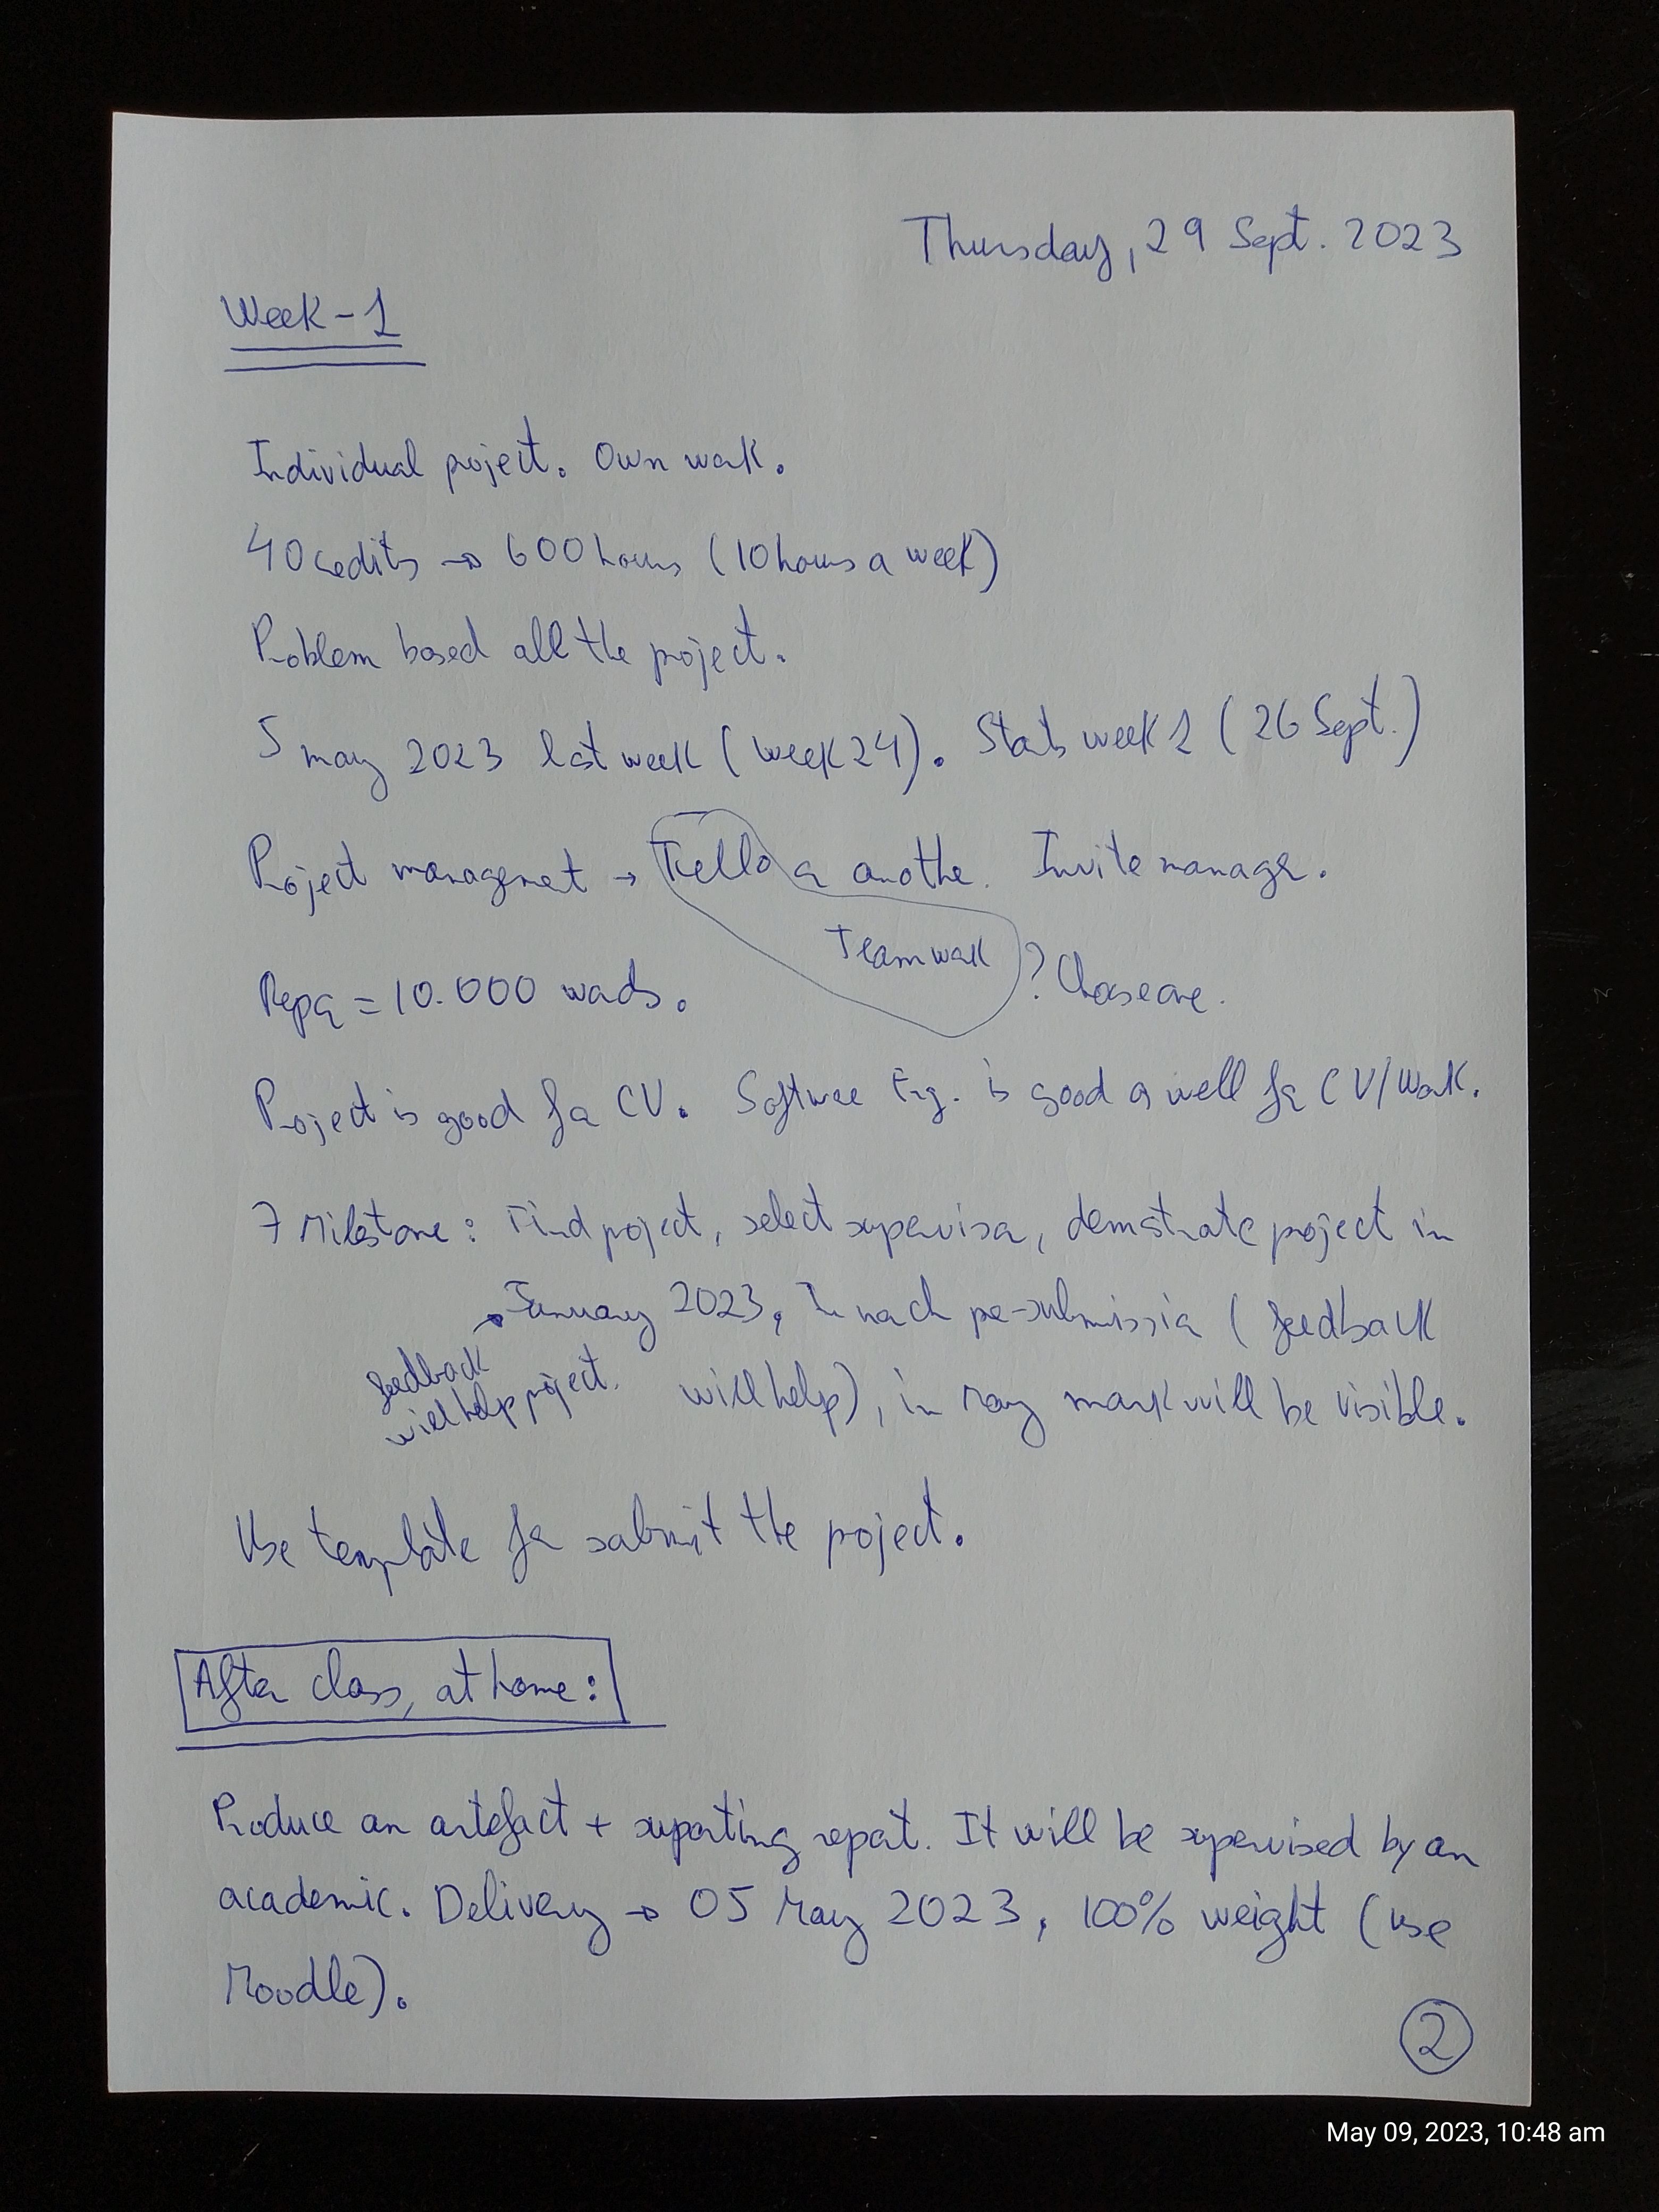 Thursday, 29 Sept. 2023
Week - 1
Individual project. Own work.
40 credits → 600 hours (10 hours a week)
Problem based all the project.
5 may 2023 last week (week 24). Starts week 1 (26 Sept.)
Project management → Trello or another. Invite manager.
Teamwork ? Choose one.
Report = 10.000 words.
Project is good for CV. Software Eng. is good as well for CV/Work.
7 Milestone: Find project, select supervisor, demstrate project in
→ January 2023, In march pre-submission (feedback
feedback
will help project. will help), in May mark will be visible.
Use template for submit the project.
After class, at home:
Produce an artefact + suporting report. It will be supervised by an
academic. Delivery → 05 May 2023, 100% weight (use
Moodle).
2
May 09, 2023, 10:48 am